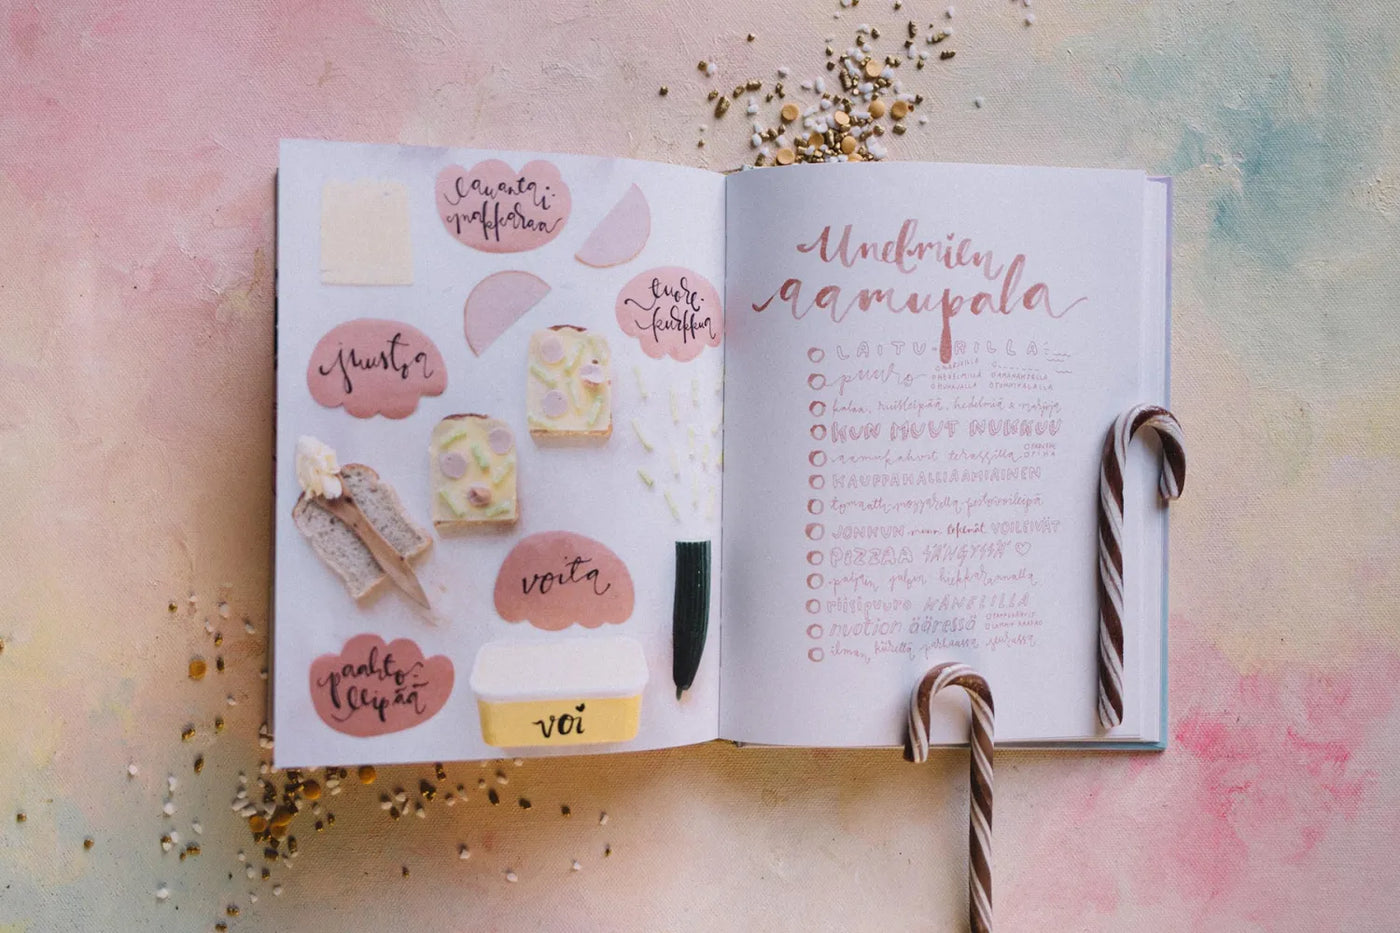 lauantai-
makkaraa
tuore-
kurkkua
juustoa
voita
paahto-
leipää
voi
Unelmien
aamupala
LAITURILLA
puuro
MARJOILLA
HEDELMILLÄ
HUNAJALLA
kalaa, ruisleipää, hedelmiä & marjoja
KUN MUUT NUKKUU
aamukahvit terassilla
KAUPPAHALLIAAMIAINEN
tomaatti-mozzarella-pestovoileipä
JONKUN muun tekemät VOILEIVÄT
PIZZAA SÄNGYSSÄ ♡
paljain jaloin hiekkarannalla
riisipuuro KANELILLA
nuotion ääressä
ilman kiirettä parhaassa seurassa